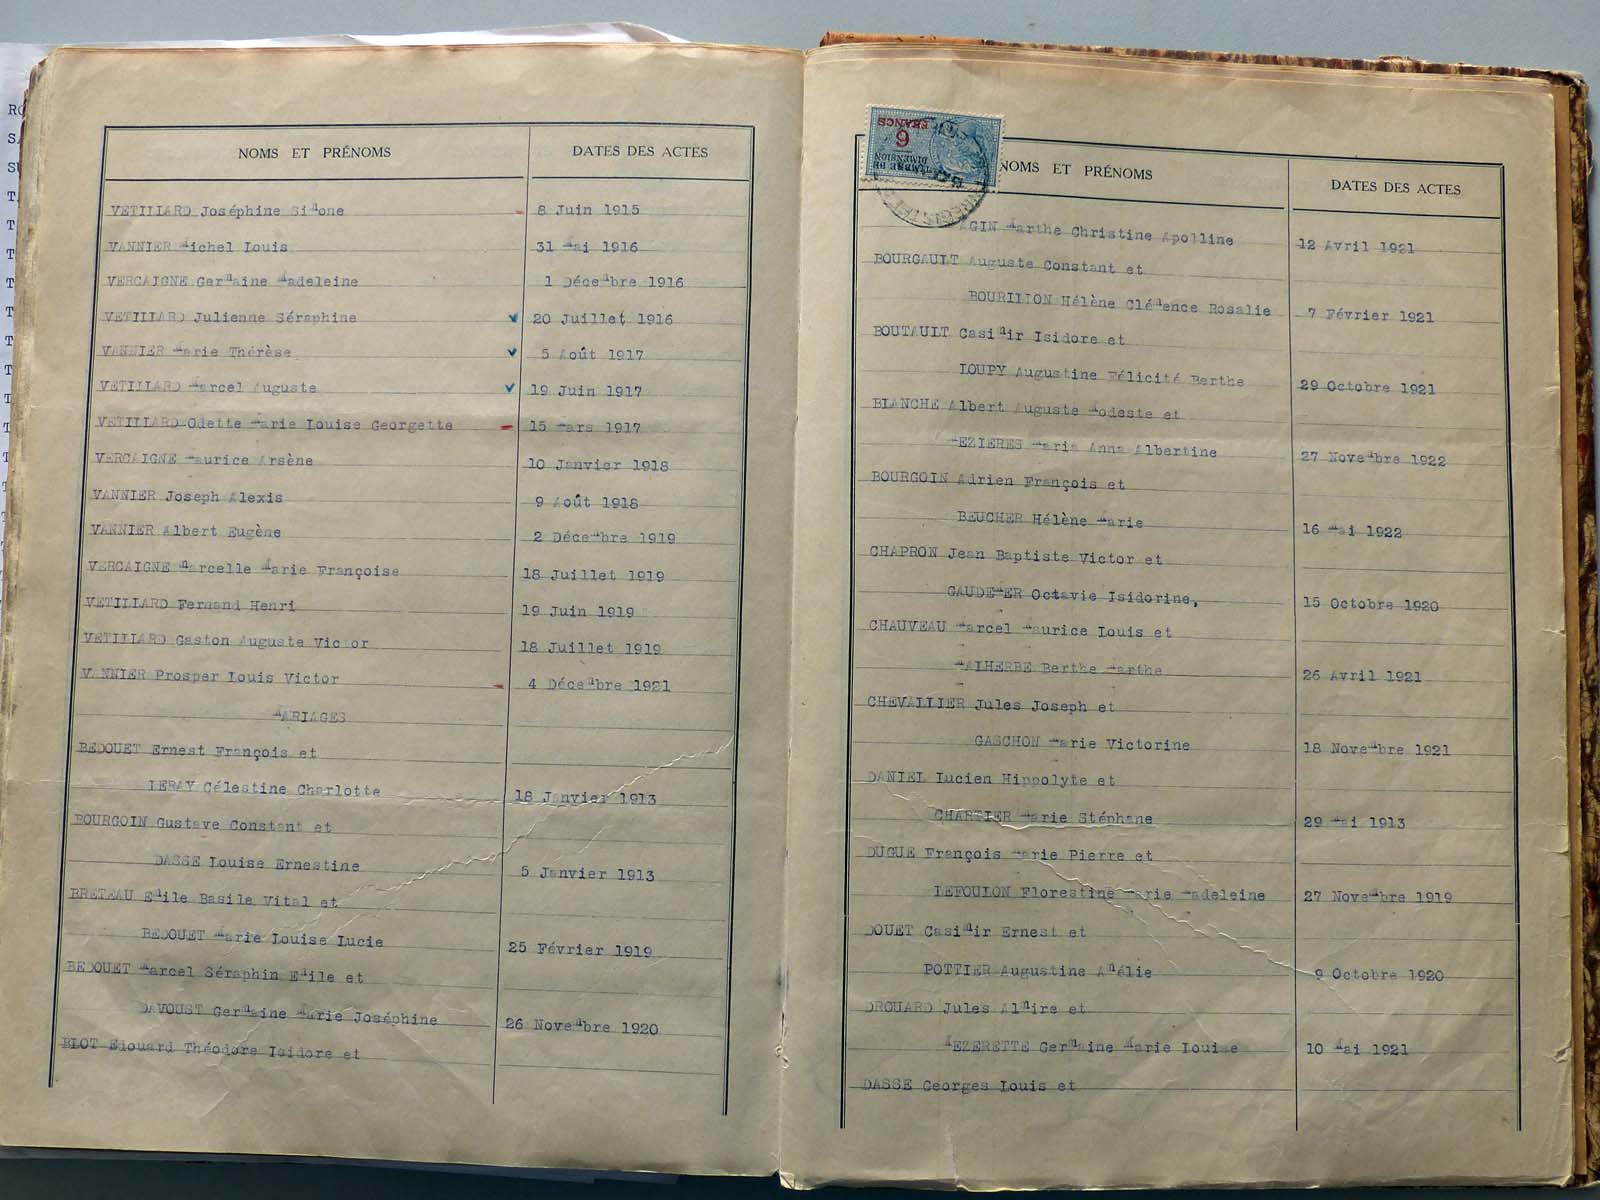 NOMS ET PRÉNOMS
DATES DES ACTES
VETILLARD Joséphine Simone 8 Juin 1915
VANNIER Michel Louis 31 Mai 1916
VERCAIGNE Germaine Madeleine 1 Décembre 1916
VETILLARD Julienne Séraphine 20 Juillet 1916
VANNIER Marie Thérèse 5 Août 1917
VETILLARD Marcel Auguste 19 Juin 1917
VETILLARD Odette Marie Louise Georgette 15 Mars 1917
VERCAIGNE Maurice Arsène 10 Janvier 1918
VANNIER Joseph Alexis 9 Août 1918
VANNIER Albert Eugène 2 Décembre 1919
VERCAIGNE Marcelle Marie Françoise 18 Juillet 1919
VETILLARD Fernand Henri 19 Juin 1919
VETILLARD Gaston Auguste Victor 18 Juillet 1919
VANNIER Prosper Louis Victor 4 Décembre 1921
MARIAGES
BEDOUET Ernest François et
LERAY Célestine Charlotte 18 Janvier 1913
BOURGOIN Gustave Constant et
DASSE Louise Ernestine 5 Janvier 1913
BRETEAU Emile Basile Vital et
BEDOUET Marie Louise Lucie 25 Février 1919
BEDOUET Marcel Séraphin Emile et
DAVOUST Germaine Marie Joséphine 26 Novembre 1920
BLOT Edouard Théodore Isidore et
6
FRANCS
TIMBRE DE
DIMENSION
NOMS ET PRÉNOMS
DATES DES ACTES
AGIN Marthe Christine Apolline 12 Avril 1921
BOURGAULT Auguste Constant et
BOURILLON Hélène Clémence Rosalie 7 Février 1921
BOUTAULT Casimir Isidore et
LOUPY Augustine Félicité Berthe 29 Octobre 1921
BLANCHE Albert Auguste Modeste et
MEZIERES Marie Anna Albertine 27 Novembre 1922
BOURGOIN Adrien François et
BEUCHER Hélène Marie 16 Mai 1922
CHAPRON Jean Baptiste Victor et
GAUDEMER Octavie Isidorine, 15 Octobre 1920
CHAUVEAU Marcel Maurice Louis et
MALHERBE Berthe Marthe 26 Avril 1921
CHEVALLIER Jules Joseph et
GASCHON Marie Victorine 18 Novembre 1921
DANIEL Lucien Hippolyte et
CHARTIER Marie Stéphane 29 Mai 1913
DUGUE François Marie Pierre et
LEFOULON Florestine Marie Madeleine 27 Novembre 1919
DOUET Casimir Ernest et
POTTIER Augustine Amélie 9 Octobre 1920
DROUARD Jules Almire et
MEZERETTE Germaine Marie Louise 10 Mai 1921
DASSE Georges Louis et